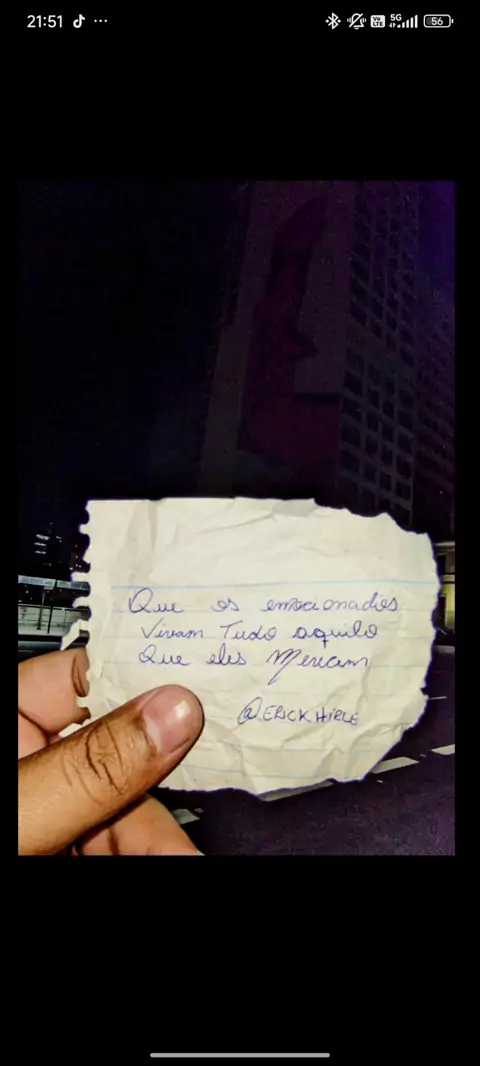 21:51
5G
56
Que os emocionados
Vivam Tudo aquilo
Que eles Mereiam
@ERICKHIRLE